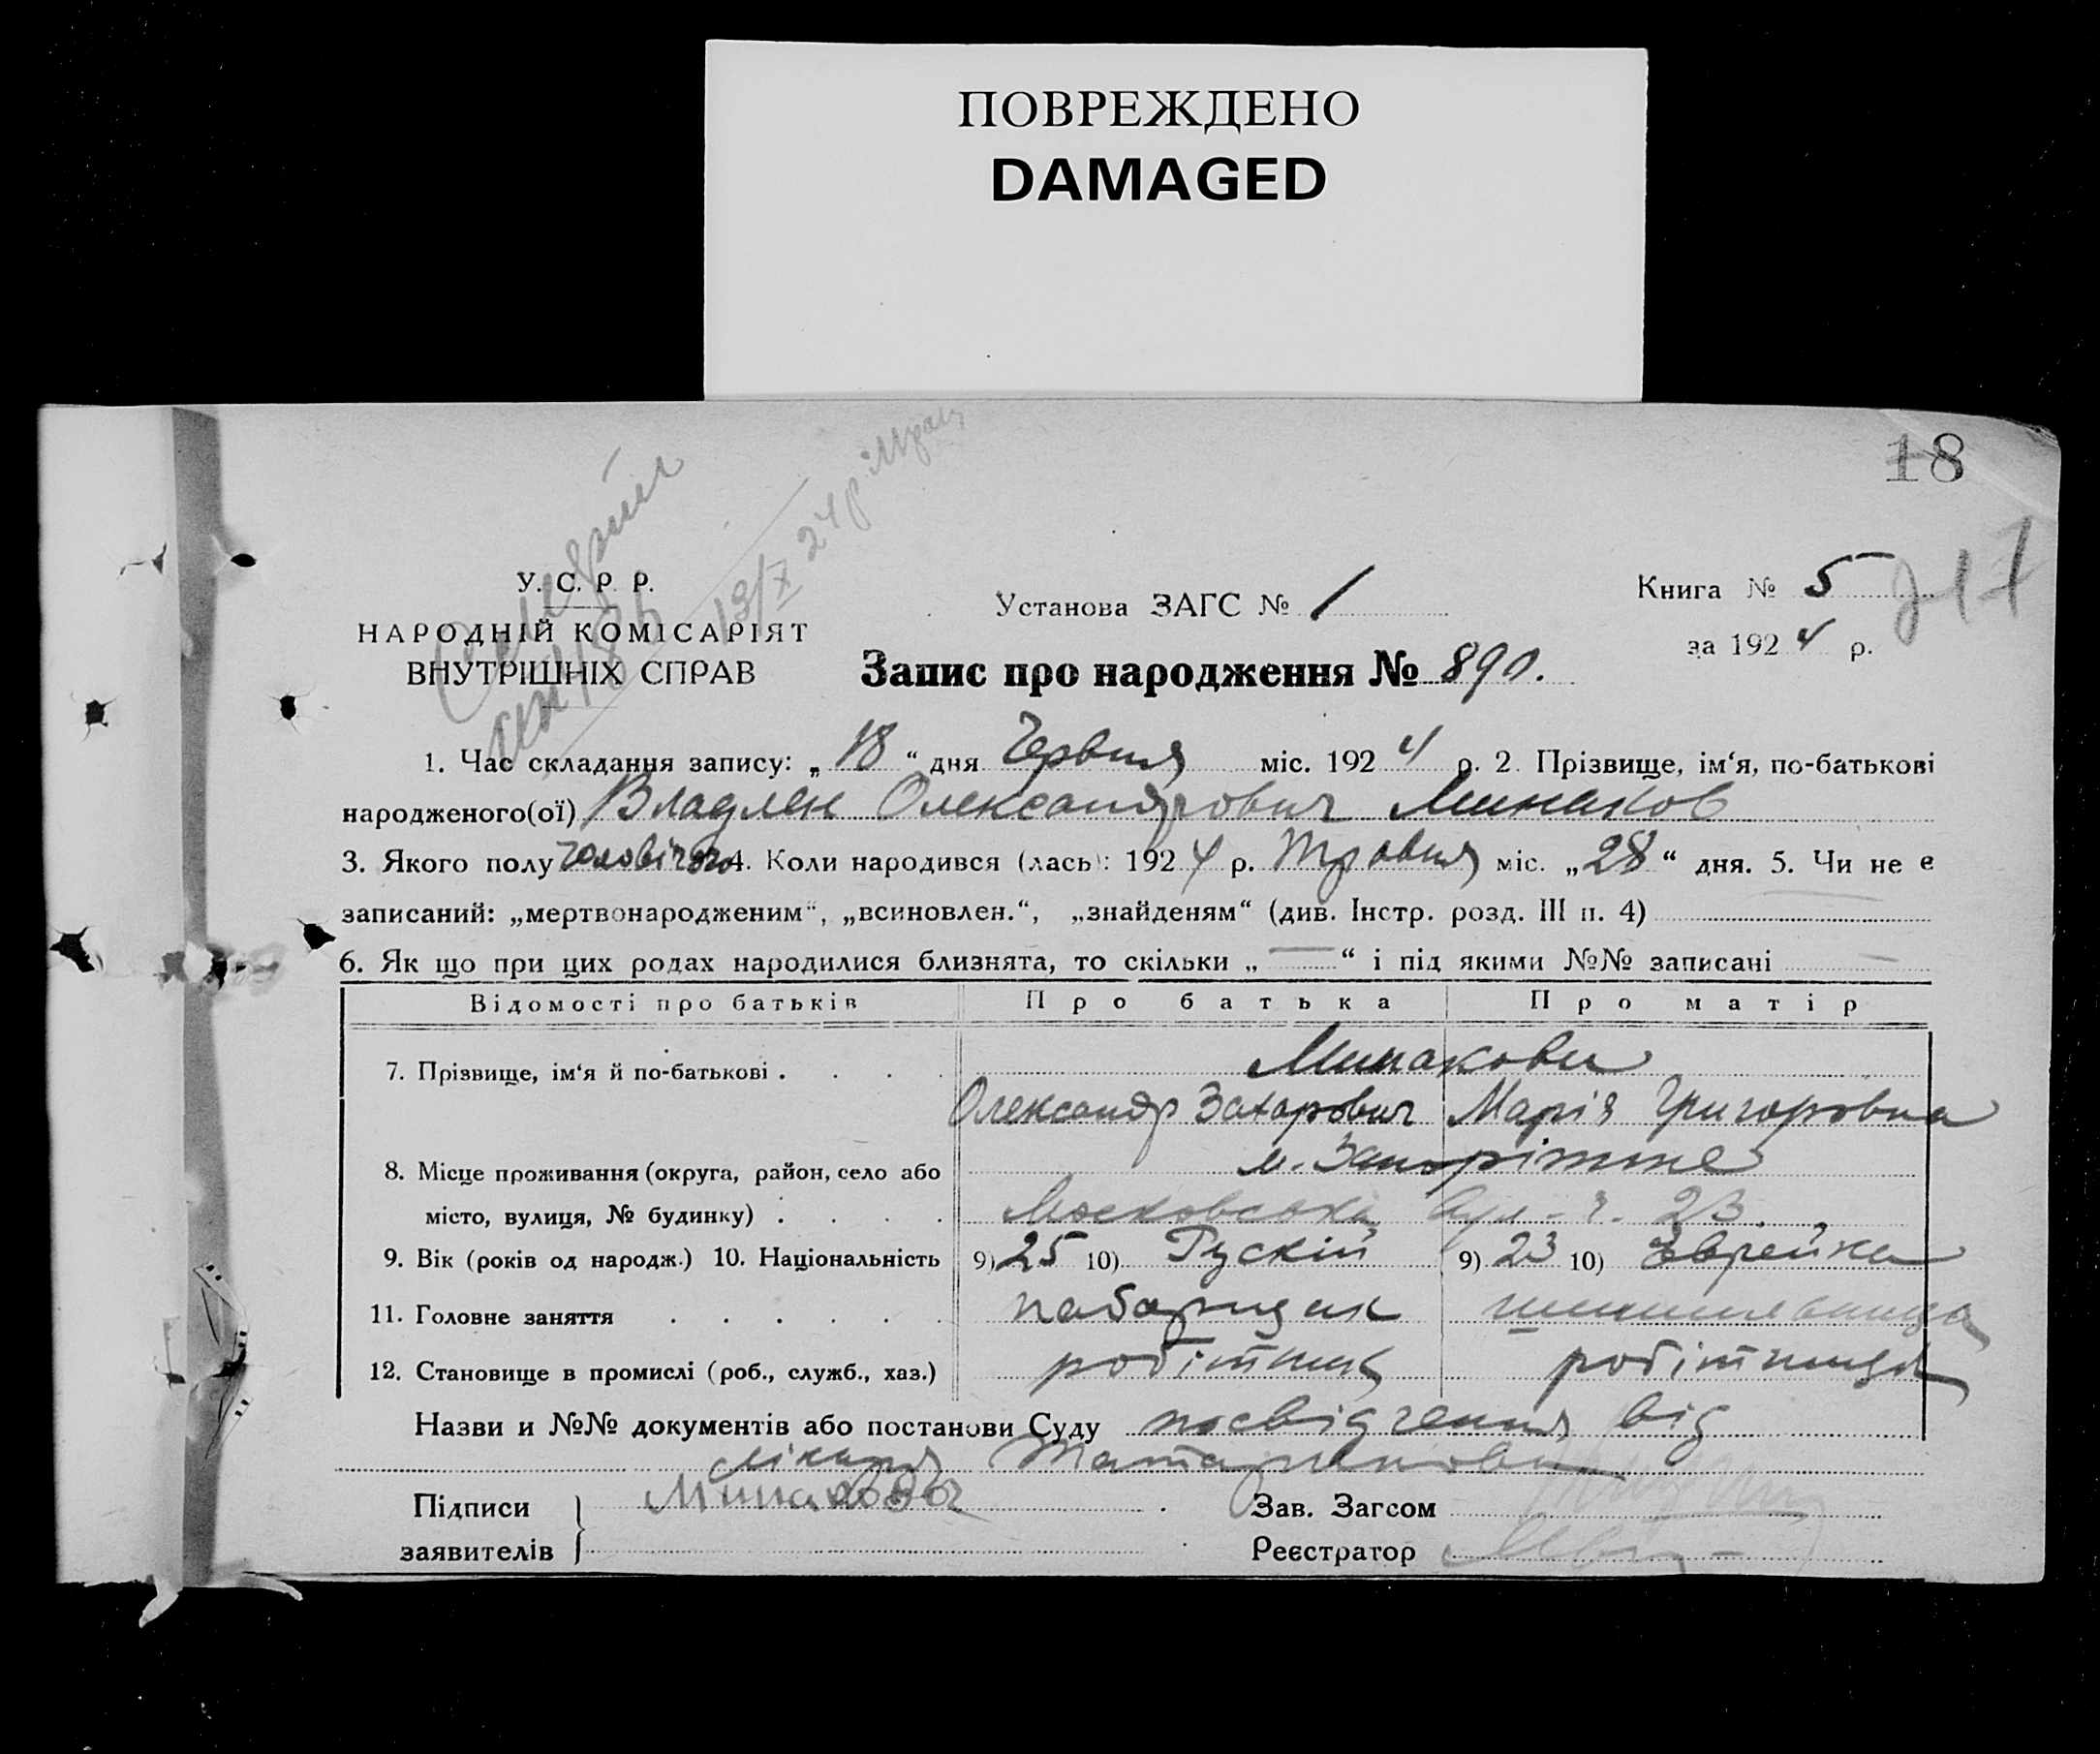 ПОВРЕЖДЕНО
DAMAGED
18
217
У. С. Р. Р.
НАРОДНІЙ КОМІСАРІЯТ
ВНУТРІШНІХ СПРАВ
13/X 24 р
Установа ЗАГС № 1
Книга № 5
за 1924 р.
Запис про народження № 890.
1. Час складання запису: „18“ дня Червня міс. 1924 р. 2. Прізвище, ім‘я, по-батькові
народженого(ої) Владлен Олександрович Минаков
3. Якого полу чоловічого 4. Коли народився (лась): 1924 р. Травня міс. „28“ дня. 5. Чи не є
записаний: „мертвонародженим“, „всиновлен.“, „знайденям“ (див. Інстр. розд. III п. 4) —
6. Як що при цих родах народилися близнята, то скільки „—“ і під якими №№ записані —
Відомості про батьків Про батька Про матір
7. Прізвище, ім‘я й по-батькові . . . . Минакови
Олександр Захарович Марія Григоровна
8. Місце проживання (округа, район, село або м. Запоріжже
місто, вулиця, № будинку) . . . . Московська вул. ч. 23.
9. Вік (років од народж.) 10. Національність 9) 25 10) Рускій 9) 23 10) Єврейка
11. Головне заняття . . . . . .
12. Становище в промислі (роб., служб., хаз.) робітник робітниця
Назви и №№ документів або постанови Суду посвідчення від
лікаря
Підписи
заявителів
Зав. Загсом
Реєстратор